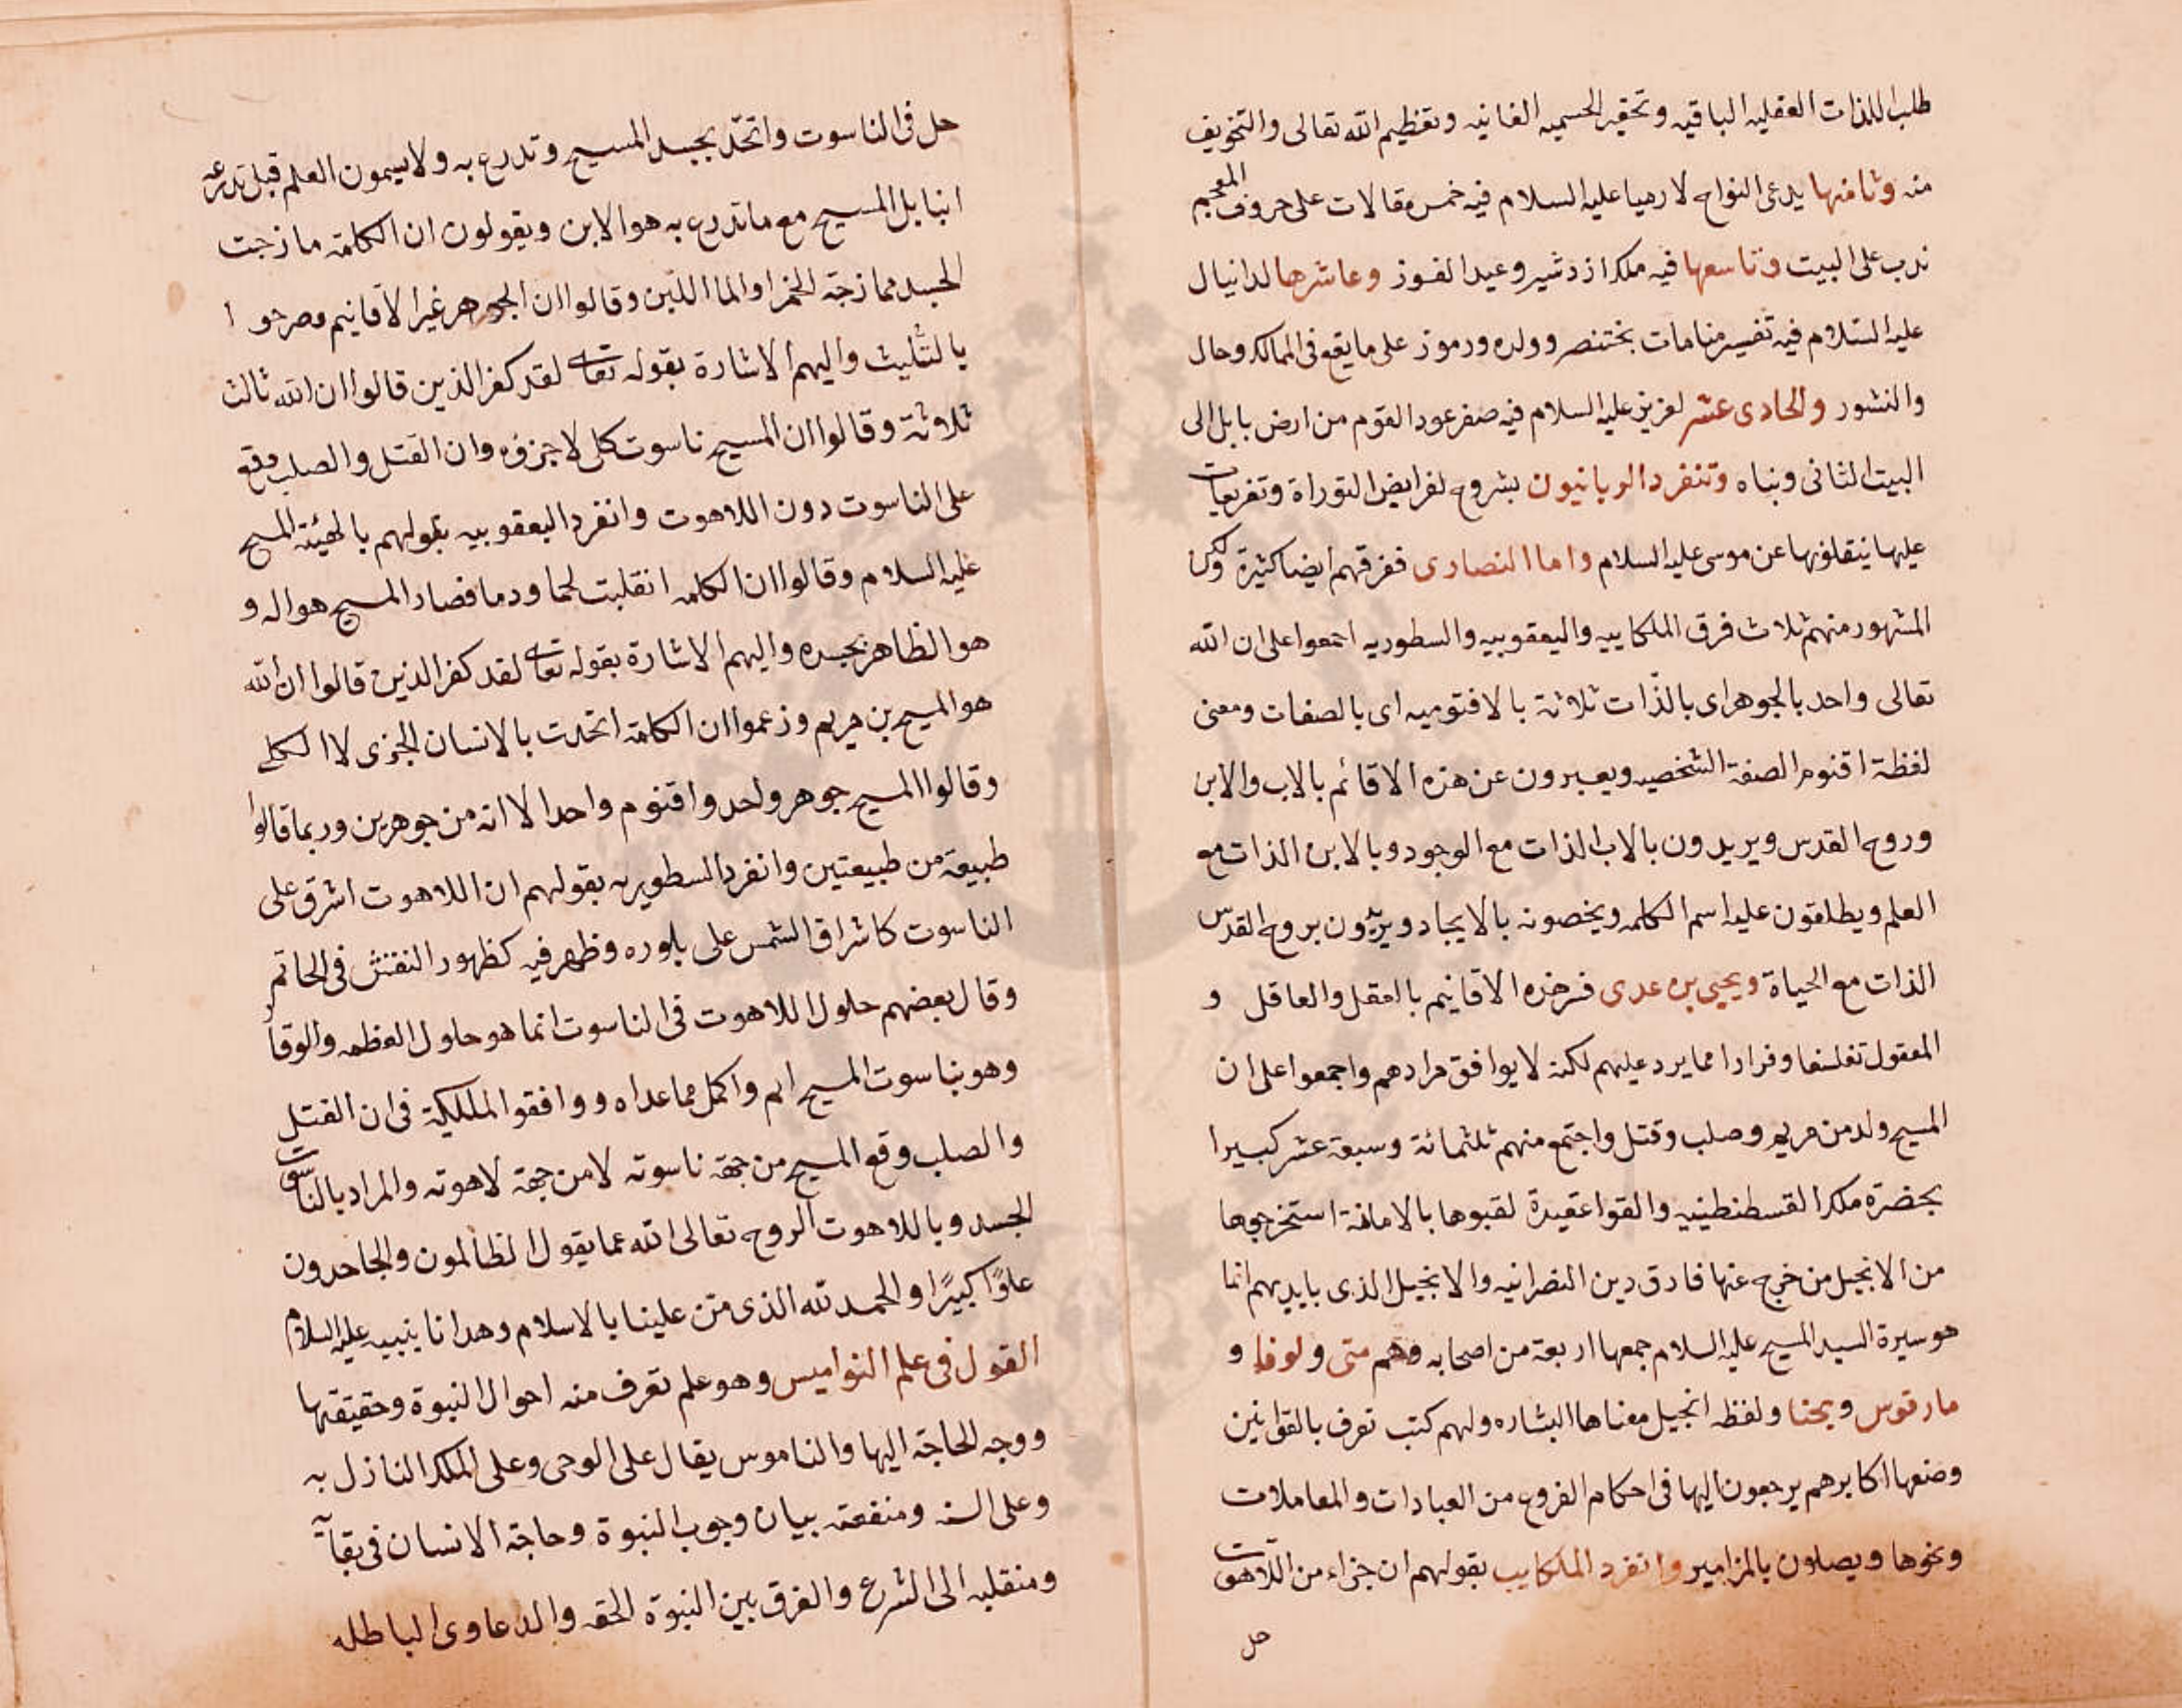 طلبا للذات العقليه الباقيه وتحقير الحسميه الفانيه وتعظيم الله تعالى والتخويف
منه وثامنها يدعى النواح لارميا عليه السلام فيه خمس مقالات على حروف المعجم
ندب على البيت وتاسعها فيه ملك ازدشير وعيد الفوز وعاشرها لدانيال
عليه السلام فيه تفسير منامات بختنصر وولده ورموز على ما يقع في الممالك وحال
والنشور والحادى عشر لعزيز عليه السلام فيه صفر عود القوم من ارض بابل الى
البيت الثانى وبناه وتنفرد الربانيون بشروح لفرايض التوراة وتفريعات
عليها ينقلونها عن موسى عليه السلام واما النصارى ففرقهم ايضا كثيرة ولكن
المشهور منهم ثلاث فرق الملكاييه واليعقوبيه والسطوريه اجمعوا على ان الله
تعالى واحد بالجوهر اى بالذّات ثلاثة بالاقنوميه اى بالصفات ومعنى
لفظة اقنوم الصفة الشخصيه ويعبرون عن هذه الاقائم بالاب والابن
وروح القدس ويريدون بالاب الذات مع الوجود وبالابن الذات مع
العلم ويطلقون عليه اسم الكلمه ويخصونه بالايجاد ويريدون بروح القدس
الذات مع الحياة ويحيى بن عدى فسر هذه الاقانيم بالعقل والعاقل و
المعقول تفلسفا وفرارا مما يرد عليهم لكنه لا يوافق مرادهم واجمعوا على ان
المسيح ولد من مريم وصلب وقتل واجتمع منهم ثلثمائة وسبعة عشر كبيرا
بحضرة ملك القسطنطينيه والقوا عقيدة لقبوها بالامانة استخرجوها
من الانجيل من خرج عنها فارق دين النصرانيه والانجيل الذى بايديهم انما
هو سيرة السيد المسيح عليه السلام جمعها اربعة من اصحابه وهم متى ولوقا و
مارقوس ويحنا ولفظه انجيل معناها البشاره ولهم كتب تعرف بالقوانين
وضعها اكابرهم يرجعون اليها فى احكام الفروع من العبادات والمعاملات
ونحوها ويصلون بالمزامير وانفرد الملكاييه بقولهم ان جزاء من اللّاهوت
حل
حل فى الناسوت واتحّد بجسد المسيح وتدرع به ولا يسمون العلم قبل تدرعه
ابنا بل المسيح مع ما تدرع به هو الابن ويقولون ان الكلمة مازجت
الجسد ممازجة الخمر او الماء اللبن وقالوا ان الجوهر غير الاقانيم وصرحوا
بالتثليث واليهم الاشارة بقوله تعالى لقد كفر الذين قالوا ان الله ثالث
ثلاثة وقالوا ان المسيح ناسوت كلى لا جزوى وان القتل والصلب وقع
على الناسوت دون اللاهوت وانفرد اليعقوبيه بقولهم بالهيئة المسيح
عليه السلام وقالوا ان الكلمه انقلبت لحما ودما فصار المسيح هو اله و
هو الظاهر بجسده واليهم الاشارة بقوله تعالى لقد كفر الذين قالوا ان الله
هو المسيح بن مريم وزعموا ان الكلمة اتحدت بالانسان الجزى لا الكلى
وقالوا المسيح جوهر واحد واقنوم واحد الا انه من جوهرين وربما قالوا
طبيعة من طبيعتين وانفرد السطوريه بقولهم ان اللاهوت اشرق على
الناسوت كاشراق الشمس على بلوره وظهر فيه كظهور النقش فى الخاتم
وقال بعضهم حلول اللاهوت فى الناسوت انما هو حلول العظمه والوقار
وهو بناسوت المسيح اتم واكمل مما عداه ووافقوا الملكية فى ان القتل
والصلب وقع المسيح من جهة ناسوته لا من جهة لاهوته والمراد بالناسوت
الجسد وباللاهوت الروح تعالى الله عما يقول الظالمون والجاحدون
علوًا كبيرًا والحمد لله الذى منّ علينا بالاسلام وهدانا بنبيه عليه السلام
القول فى علم النواميس وهو علم تعرف منه احوال النبوة وحقيقتها
ووجه الحاجة اليها والناموس يقال على الوحى وعلى الملك النازل به
وعلى السنه ومنفعته بيان وجوب النبوة وحاجة الانسان فى بقآئه
ومنقلبه الى الشرع والفرق بين النبوة الحقه والدعاوى الباطله